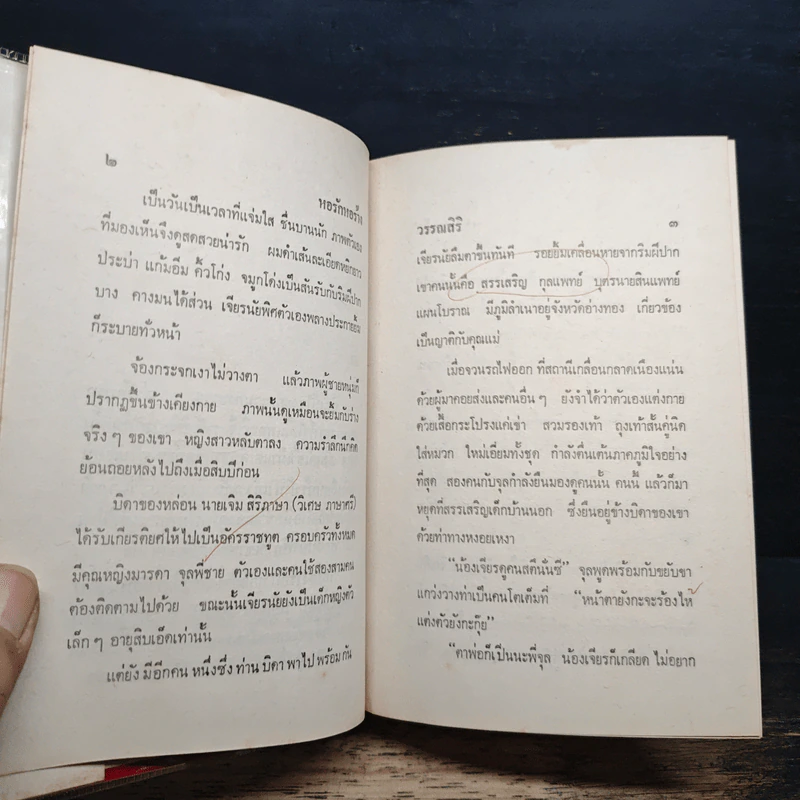 ๒
หอรักหอร้าง
เป็นวันเป็นเวลาที่แจ่มใส ชื่นบานนัก ภาพตัวเอง
ที่มองเห็นจึงดูสดสวยน่ารัก ผมดำเส้นละเอียดหยิกยาว
ประบ่า แก้มอิ่ม คิ้วโก่ง จมูกโด่งเป็นสันรับกับริมฝีปาก
บาง คางมนได้ส่วน เจียรนัยพิศตัวเองพลางประกายยิ้ม
ก็ระบายทั่วหน้า
จ้องกระจกเงาไม่วางตา แล้วภาพผู้ชายหนุ่มก็
ปรากฏขึ้นข้างเคียงกาย ภาพนั้นดูเหมือนจะยิ้มกับร่าง
จริง ๆ ของเขา หญิงสาวหลับตาลง ความรำลึกนึกคิด
ย้อนถอยหลังไปถึงเมื่อสิบปีก่อน
บิดาของหล่อน นายเจิม สิริภาษา (วิเศษ ภาษาศรี)
ได้รับเกียรติยศให้ไปเป็นอัครราชทูต ครอบครัวทั้งหมด
มีคุณหญิงมารดา จุลพี่ชาย ตัวเองและคนใช้สองสามคน
ต้องติดตามไปด้วย ขณะนั้นเจียรนัยยังเป็นเด็กหญิงตัว
เล็ก ๆ อายุสิบเอ็ดเท่านั้น
แต่ยัง มีอีกคน หนึ่งซึ่ง ท่าน บิดา พาไป พร้อม กัน
วรรณสิริ
๓
เจียรนัยลืมตาขึ้นทันที รอยยิ้มเคลื่อนหายจากริมฝีปาก
เขาคนนั้นคือ สรรเสริญ กุลแพทย์ บุตรนายสินแพทย์
แผนโบราณ มีภูมิลำเนาอยู่จังหวัดอ่างทอง เกี่ยวข้อง
เป็นญาติกับคุณแม่
เมื่อจวนรถไฟออก ที่สถานีเกลื่อนกลาดเนืองแน่น
ด้วยผู้มาคอยส่งและคนอื่น ๆ ยังจำได้ว่าตัวเองแต่งกาย
ด้วยเสื้อกระโปรงแค่เข่า สวมรองเท้า ถุงเท้าสั้นคู่นิด
ใส่หมวก ใหม่เอี่ยมทั้งชุด กำลังตื่นเต้นภาคภูมิใจอย่าง
ที่สุด สองคนกับจุลกำลังยืนมองดูคนนั้น คนนี้ แล้วก็มา
หยุดที่สรรเสริญเด็กบ้านนอก ซึ่งยืนอยู่ข้างบิดาของเขา
ด้วยท่าทางหงอยเหงา
"น้องเจียรดูคนสดีนั่นซี" จุลพูดพร้อมกับขยับขา
แกว่งวางท่าเป็นคนโตเต็มที่ "หน้าตายังกะจะร้องไห้
แต่งตัวยังกะกุ๊ย"
"ตาพ่อก็เป็นนะพี่จุล น้องเจียรก็เกลียด ไม่อยาก